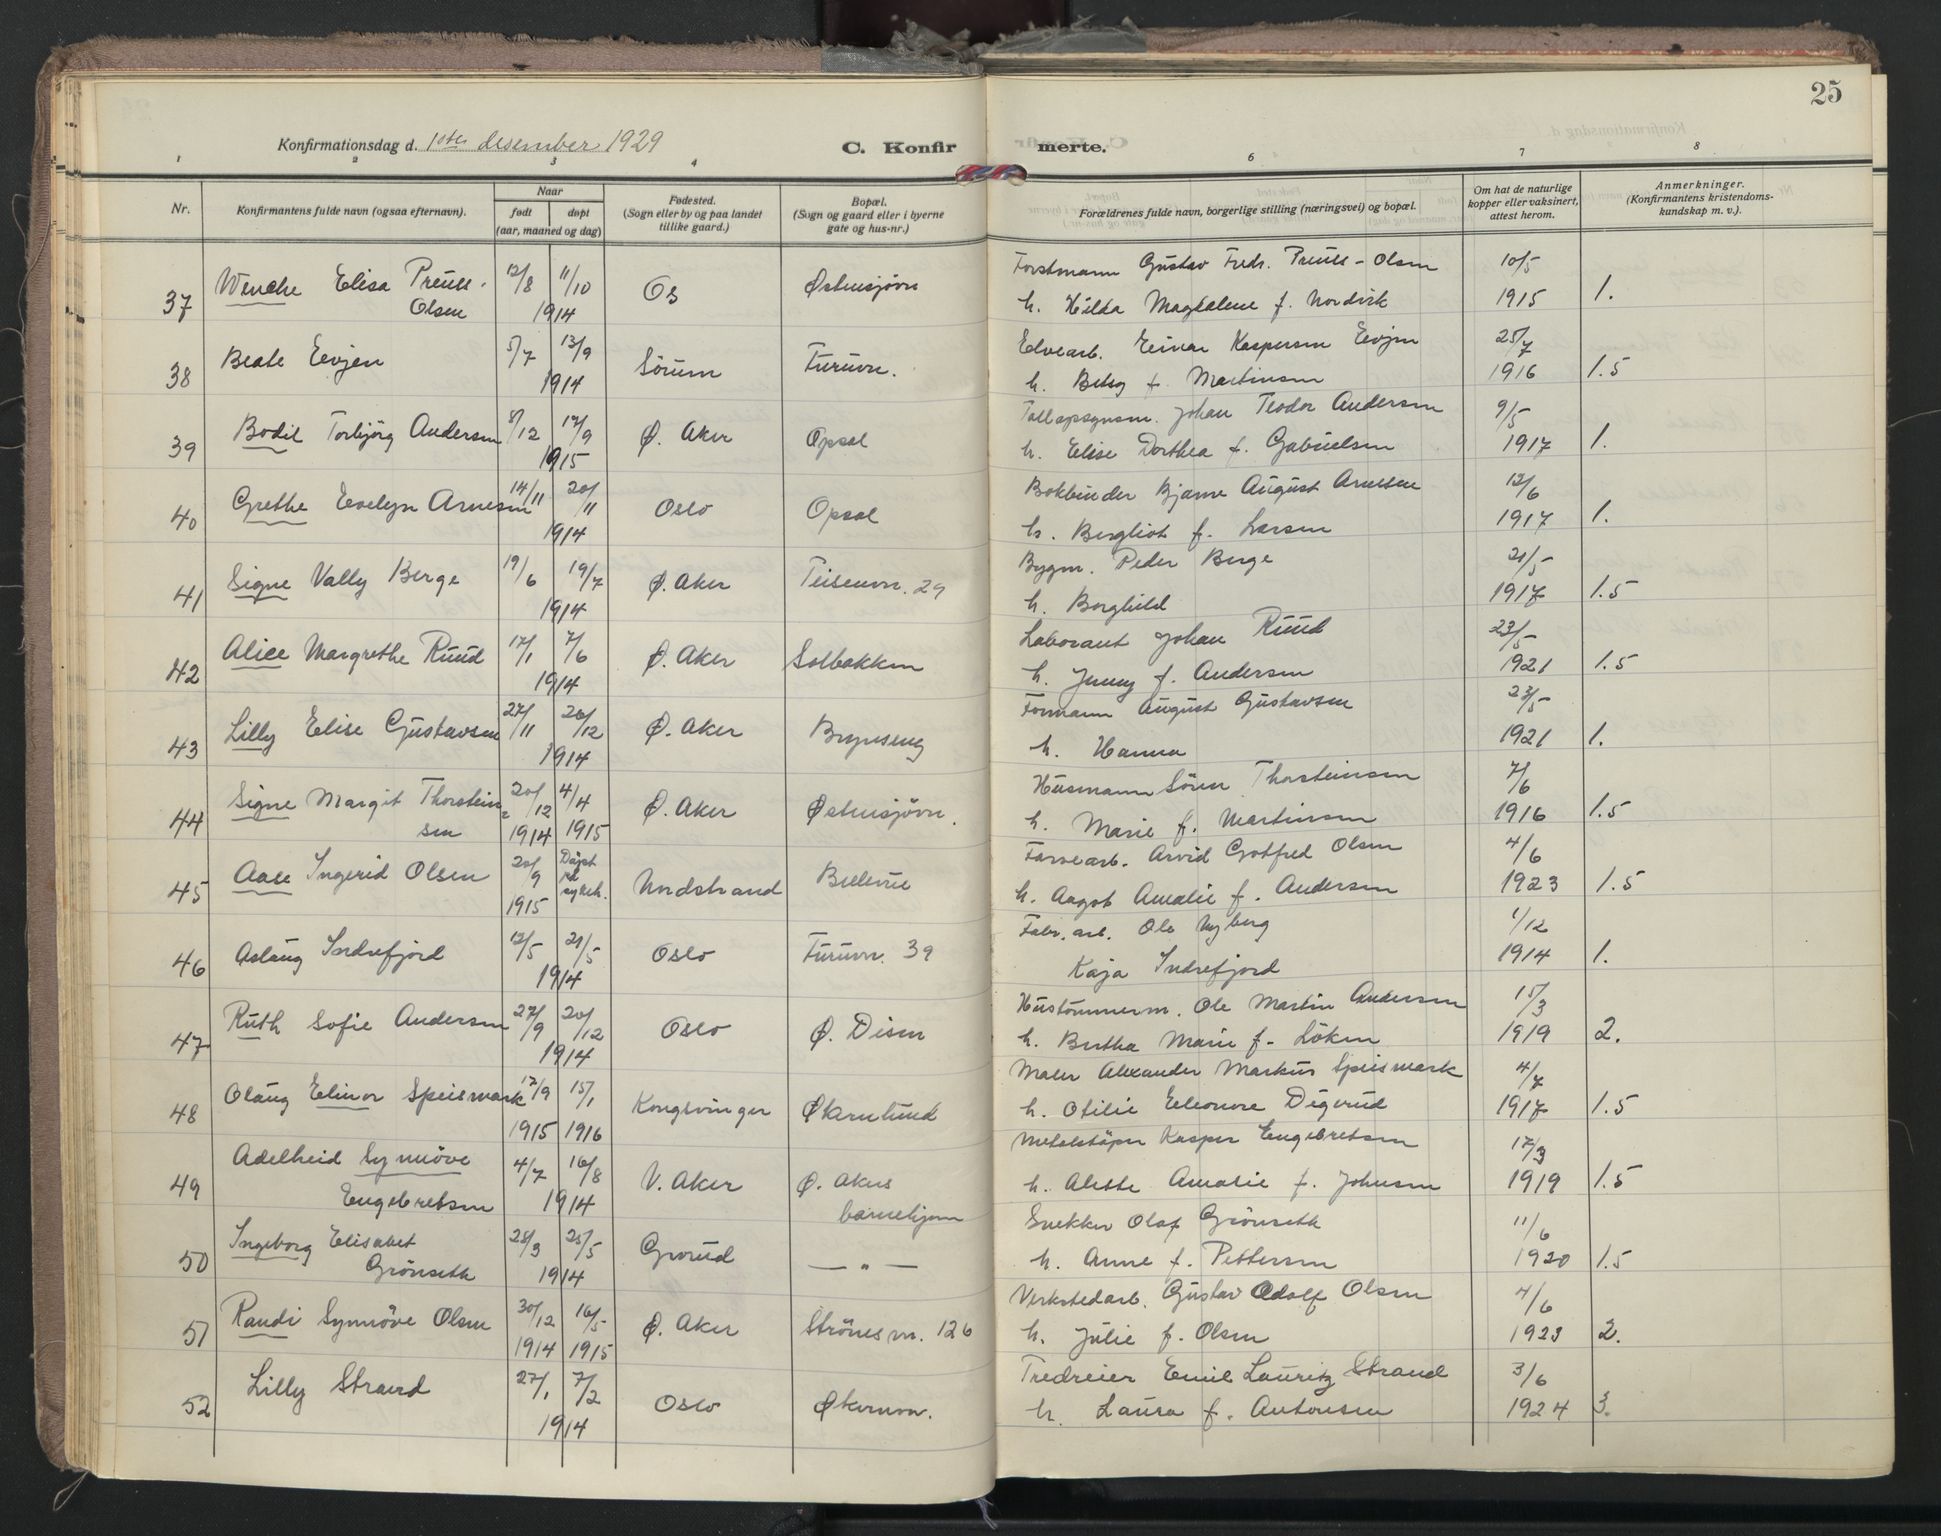 25
Konfirmationsdag d. 1ste desember 1929 C. Konfirmerte.
1 2 3 4 6 7 8
Nr. Konfirmantens fulde navn (ogsaa efternavn). Naar født døpt (aar, maaned og dag) Fødested. (Sogn eller by og paa landet tillike gaard.) Bopæl. (Sogn og gaard eller i byerne gate og hus-nr.) Forældrenes fulde navn, borgerlige stilling (næringsvei) og bopæl. Om hat de naturlige kopper eller vaksinert, attest herom. Anmerkninger. (Konfirmantens kristendomskundskap m. v.).
37 Wenche Elisa Preuss-Olsen 12/8 11/10 1914 Os Østensjøvn Forstmann Gustav Fredr. Preuss-Olsen 10/5
h. Hilda Magdalene f. Nordvik 1915 1.
38 Beate Eevjen 5/7 13/9 1914 Sörum Furuvn. Elvearb. Einar Kaspersen Eevjen 25/7
h. Betsy f. Martinsen 1916 1.5
39 Bodil Torbjörg Andersen 8/12 12/9 1915 Ø. Aker Opsal Tollopsynsm. Johan Teodor Andersen 9/5
h. Elise Dorthea f. Gabrielsen 1917 1.
40 Grethe Evelyn Arnesen 14/11 20/11 1914 Oslo Opsal Bokbinder Bjarne August Arnesen 12/6
h. Bergliot f. Larsen 1917 1.
41 Signe Vally Berge 19/6 19/7 1914 Ø. Aker Teisenvn. 29 Bygm. Peder Berge 21/5
h. Borghild 1917 1.5
42 Alice Margrethe Ruud 17/1 7/6 1914 Ø. Aker Solbakken Laborant Johan Ruud 23/5
h. Jenny f. Andersen 1921 1.5
43 Lilly Elise Gustavsen 27/11 26/12 1914 Ø. Aker Brynseng Formann August Gustavsen 23/5
h. Hanna 1921 1.
44 Signe Margit Thorsteinsen 20/12 1914 4/4 1915 Ø. Aker Østensjøvn. Husmann Sören Thorsteinsen 7/6
h. Marie f. Martinsen 1916 1.5
45 Aase Ingerid Olsen 20/9 1915 Döpt på sykeh. Nordstrand Bellevue Farvearb. Arvid Gotfred Olsen 4/6
h. Aagot Amalie f. Andersen 1923 1.5
46 Aslaug Indrefjord 12/5 21/5 1914 Oslo Furuvn. 39 Fabr. arb. Ole Nyberg 1/12
Kaja Indrefjord 1914 1.
47 Ruth Sofie Andersen 27/9 20/12 1914 Oslo Ø. Disen Hustömmerm. Ole Martin Andersen 15/3
h. Bertha Marie f. Löken 1919 2.
48 Olaug Elinor Speismark 17/9 1915 15/1 1916 Kongsvinger Økernlund Maler Alexander Markus Speismark 4/7
h. Otilie Eleonore Digerud 1917 1.5
49 Adelheid Synnöve Engebretsen 4/7 16/8 1914 V. Aker Ø. Akers barnehjem Metalstöper Kasper Engebretsen 17/3
h. Alette Amalie f. Johnsen 1919 1.5
50 Ingeborg Elisabet Grönseth 28/3 25/5 1914 Grorud — " — Snekker Olaf Grönseth 11/6
h. Anne f. Pettersen 1920 1.5
51 Randi Synnöve Olsen 30/12 1914 16/5 1915 Ø. Aker Strömsvn. 126 Verkstedarb. Gustav Adolf Olsen 4/6
h. Julie f. Olsen 1923 2.
52 Lilly Strand 27/1 7/2 1914 Oslo Økernvn. Tredreier Emil Lauritz Strand 3/6
h. Laura f. Antonsen 1924 3.